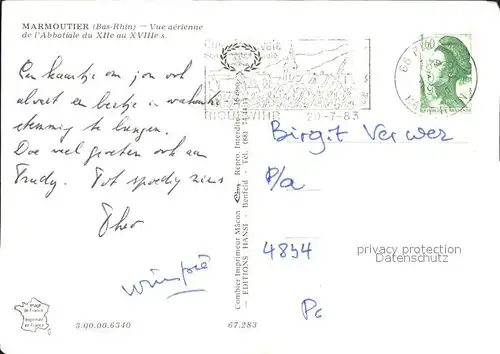 MARMOUTIER (Bas-Rhin) — Vue aérienne
de l'Abbatiale du XIIe au XVIIIe s.
Een kaartje om jou ook
alvast een beetje in vakantie
stemming te brengen.
Doe veel groeten ook aan
Trudy. Tot spoedig ziens
Theo
RIQUEWIHR 20-7-83
68
HAUT-RHIN
Birgit Verwer
P/a
4834
Pc
privacy protection
Combier Imprimeur Mâcon
Repro. Interdite
— EDITIONS HANSI - Benfeld - Tél. (88) 74.41.
image
de France
imprimée
en France
3.00.00.6340
67.283